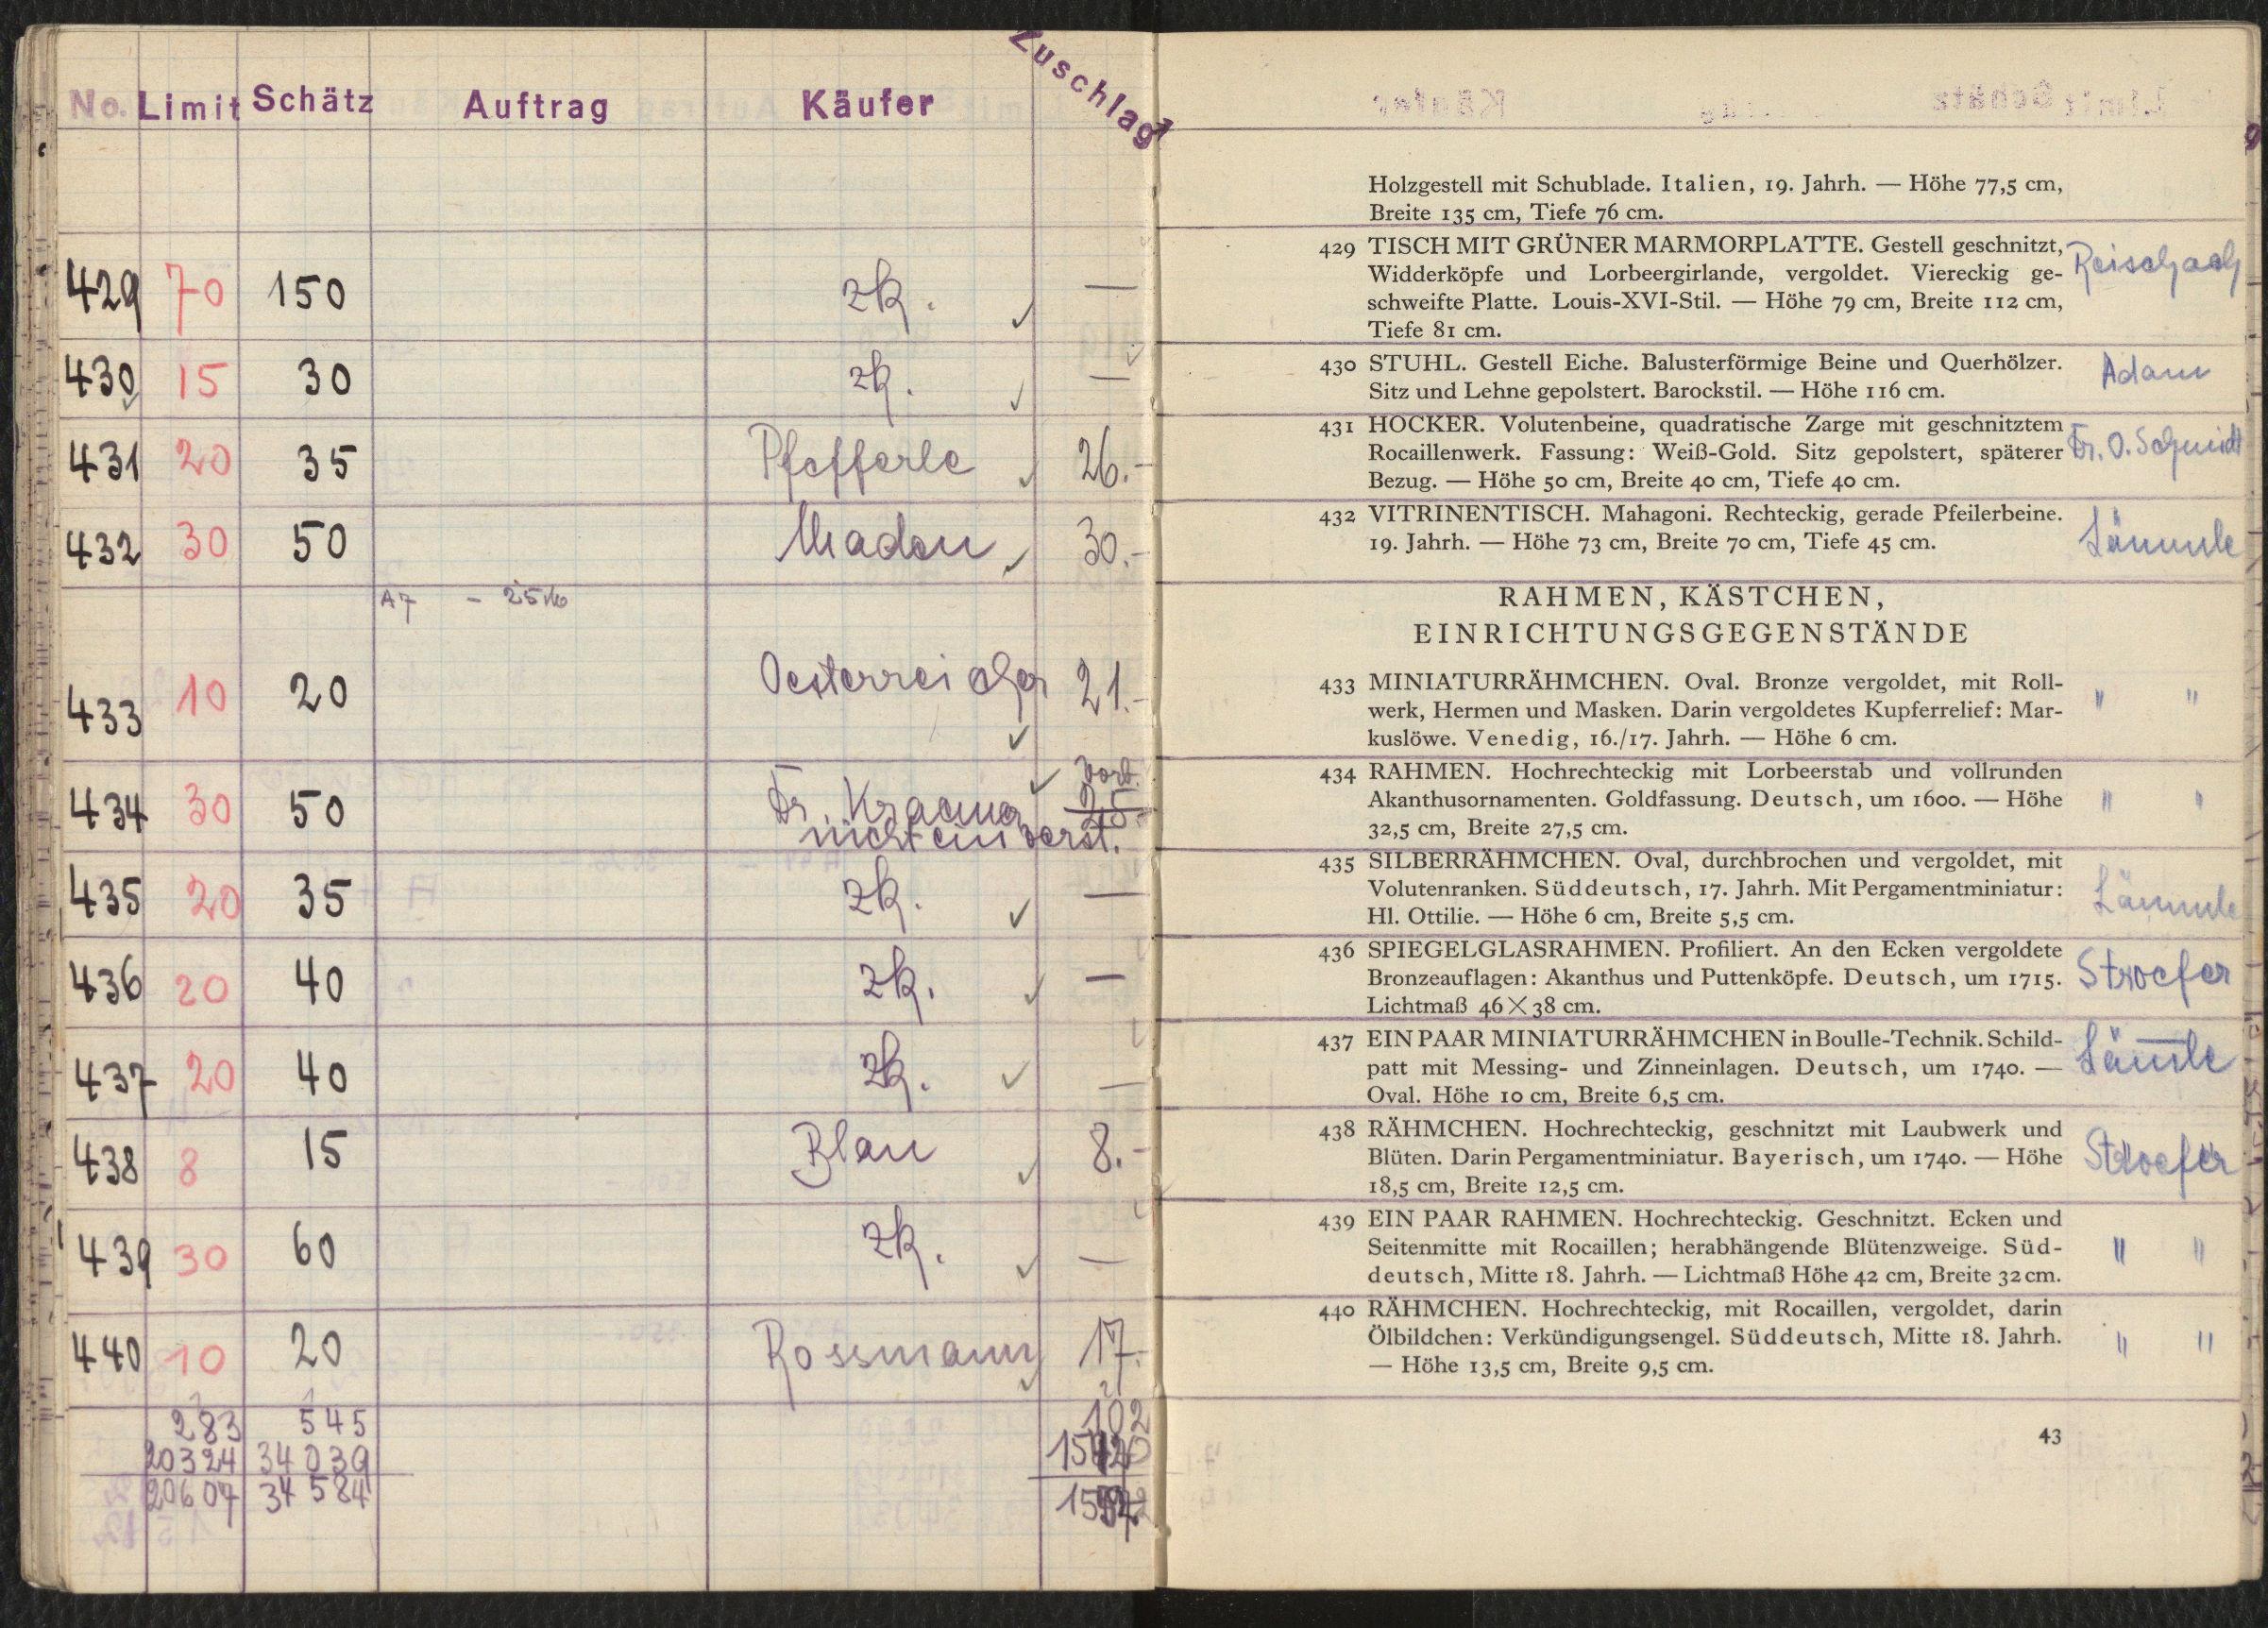 No. Limit Schätz Auftrag Käufer Zuschlag
429 70 150 zk. —
430 15 30 zk. —
431 20 35 Pfefferle 26.-
432 30 50 Maden 30.-
A7 -
433 10 20 Oesterreicher 21.-
434 30 50 Dr. Kraemer Vorb. 25.-
nicht einverst.
435 20 35 zk. —
436 20 40 zk. —
437 20 40 zk. —
438 8 15 Blau 8.-
439 30 60 zk. —
440 10 20 Rossmann 17.-
283 545 102
20324 34039
20607 34584
Holzgestell mit Schublade. Italien, 19. Jahrh. — Höhe 77,5 cm,
Breite 135 cm, Tiefe 76 cm.
429 TISCH MIT GRÜNER MARMORPLATTE. Gestell geschnitzt, Reischach
Widderköpfe und Lorbeergirlande, vergoldet. Viereckig ge-
schweifte Platte. Louis-XVI-Stil. — Höhe 79 cm, Breite 112 cm,
Tiefe 81 cm.
430 STUHL. Gestell Eiche. Balusterförmige Beine und Querhölzer. Adam
Sitz und Lehne gepolstert. Barockstil. — Höhe 116 cm.
431 HOCKER. Volutenbeine, quadratische Zarge mit geschnitztem
Rocaillenwerk. Fassung: Weiß-Gold. Sitz gepolstert, späterer Dr. O. Schmidt
Bezug. — Höhe 50 cm, Breite 40 cm, Tiefe 40 cm.
432 VITRINENTISCH. Mahagoni. Rechteckig, gerade Pfeilerbeine. Lämmle
19. Jahrh. — Höhe 73 cm, Breite 70 cm, Tiefe 45 cm.
RAHMEN, KÄSTCHEN,
EINRICHTUNGSGEGENSTÄNDE
433 MINIATURRÄHMCHEN. Oval. Bronze vergoldet, mit Roll- " "
werk, Hermen und Masken. Darin vergoldetes Kupferrelief: Mar-
kuslöwe. Venedig, 16./17. Jahrh. — Höhe 6 cm.
434 RAHMEN. Hochrechteckig mit Lorbeerstab und vollrunden
Akanthusornamenten. Goldfassung. Deutsch, um 1600. — Höhe " "
32,5 cm, Breite 27,5 cm.
435 SILBERRÄHMCHEN. Oval, durchbrochen und vergoldet, mit
Volutenranken. Süddeutsch, 17. Jahrh. Mit Pergamentminiatur: Lämmle
Hl. Ottilie. — Höhe 6 cm, Breite 5,5 cm.
436 SPIEGELGLASRAHMEN. Profiliert. An den Ecken vergoldete
Bronzeauflagen: Akanthus und Puttenköpfe. Deutsch, um 1715. Stroefer
Lichtmaß 46×38 cm.
437 EIN PAAR MINIATURRÄHMCHEN in Boulle-Technik. Schild-
patt mit Messing- und Zinneinlagen. Deutsch, um 1740. — Läm̄le
Oval. Höhe 10 cm, Breite 6,5 cm.
438 RÄHMCHEN. Hochrechteckig, geschnitzt mit Laubwerk und
Blüten. Darin Pergamentminiatur. Bayerisch, um 1740. — Höhe Stroefer
18,5 cm, Breite 12,5 cm.
439 EIN PAAR RAHMEN. Hochrechteckig. Geschnitzt. Ecken und
Seitenmitte mit Rocaillen; herabhängende Blütenzweige. Süd- " "
deutsch, Mitte 18. Jahrh. — Lichtmaß Höhe 42 cm, Breite 32 cm.
440 RÄHMCHEN. Hochrechteckig, mit Rocaillen, vergoldet, darin
Ölbildchen: Verkündigungsengel. Süddeutsch, Mitte 18. Jahrh. " "
— Höhe 13,5 cm, Breite 9,5 cm.
43